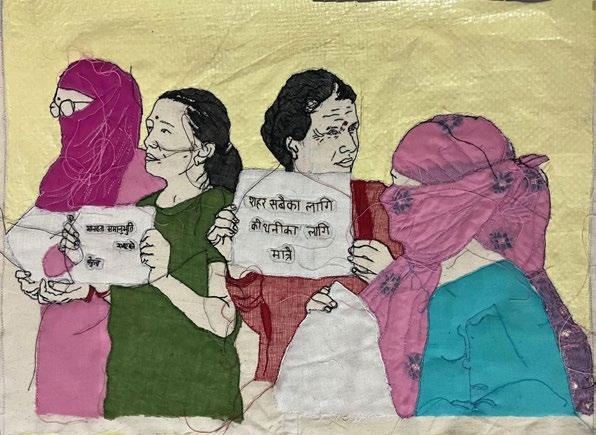 समानुभूति
शहर सबैका लागि
की धनीका लागि
मात्रै